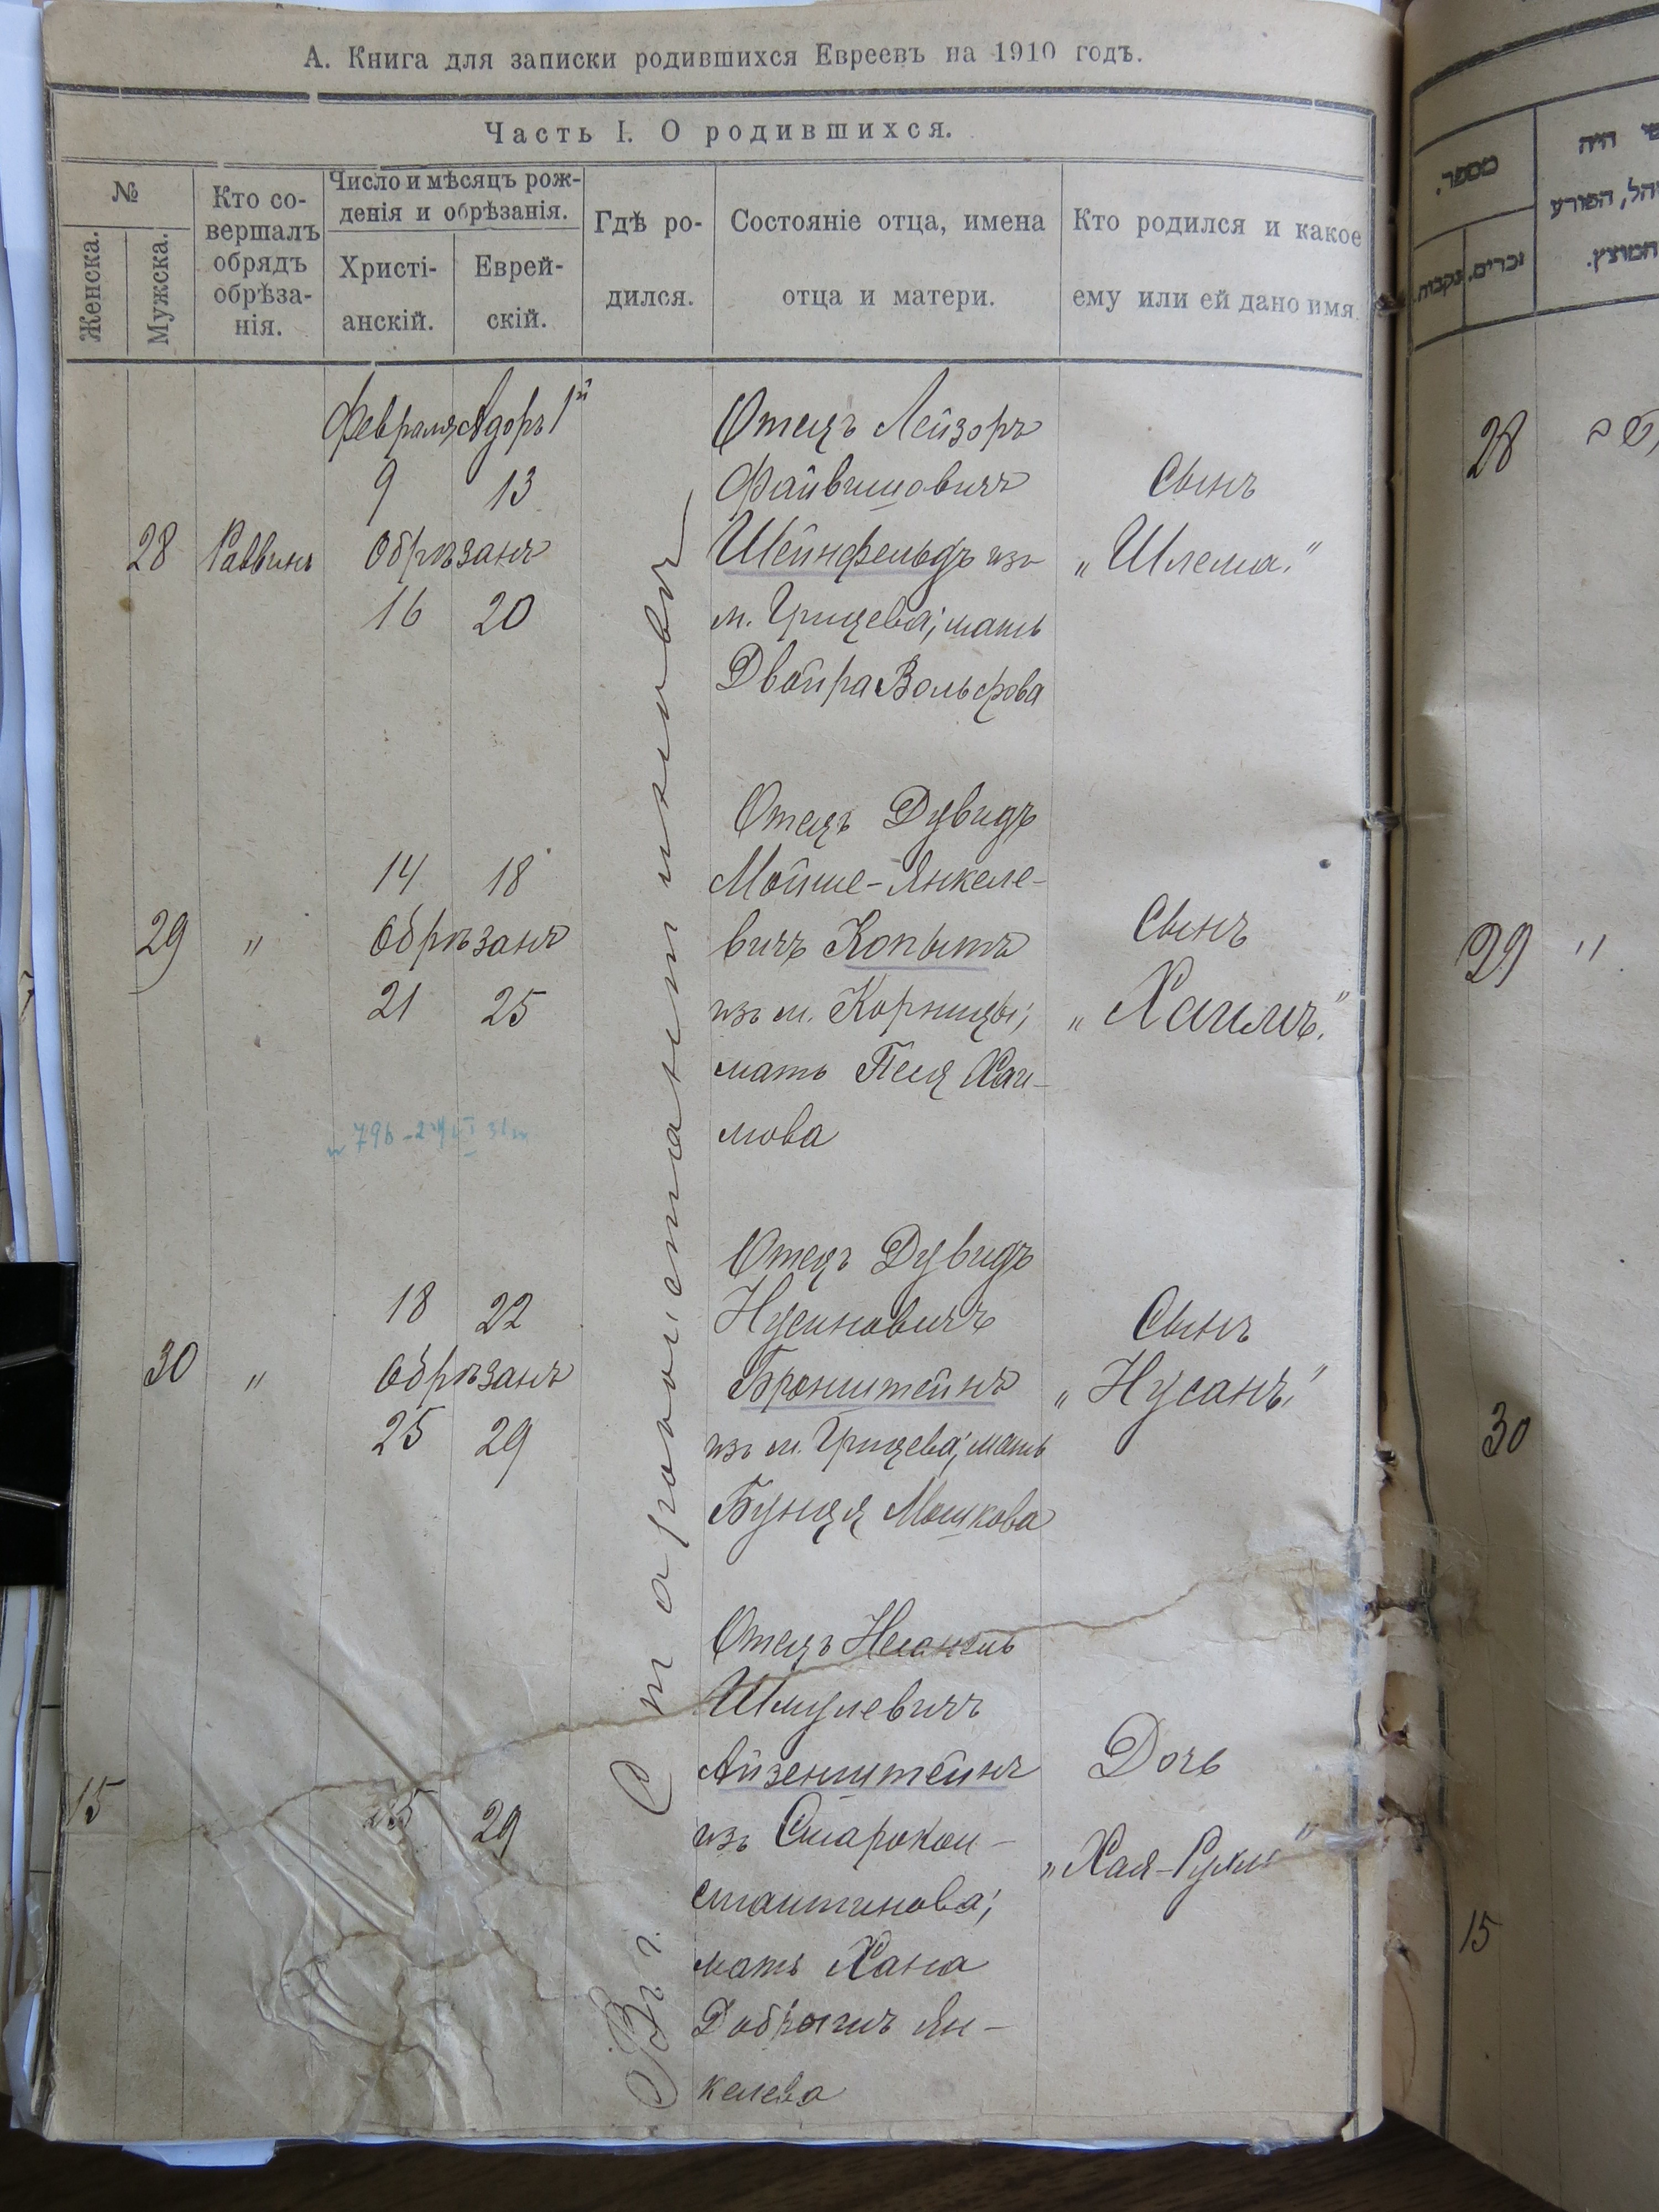 А. Книга для записки родившихся Евреевъ на 1910 годъ.
Часть I. О родившихся.
№
Женска.
Мужска.
Кто со-
вершалъ
обрядъ
обрѣза-
нія.
Число и мѣсяцъ рож-
денія и обрѣзанія.
Христі-
анскій.
Еврей-
скій.
Гдѣ ро-
дился.
Состояніе отца, имена
отца и матери.
Кто родился и какое
ему или ей дано имя.
Въ г. Старокостантиновѣ
28 Раввинъ
Февраля Адоръ 1й
9 13
Обрѣзанъ
16 20
Отецъ Лейзоръ
Файвишовичъ
Шейнфельдъ изъ
м. Грицева; мать
Двойра Вольфова
Сынъ
„Шлема."
29 "
14 18
Обрѣзанъ
21 25
Отецъ Дувидъ
Мойше-Янкеле-
вичъ Копытъ
изъ м. Корницы;
мать Песя Хаи-
мова
Сынъ
„Хаимъ."
30 "
18 22
Обрѣзанъ
25 29
Отецъ Дувидъ
Нусиновичъ
Бронштейнъ
изъ м. Грицева; мать
Бунця Мошкова
Сынъ
„Нусанъ"
15
25 29
Отецъ
Шмулевичъ
Айзенштейнъ
изъ Старокон-
стантинова;
мать Хана
Ян-
келева
Дочь
„Хая-
מספר.
נקבות.
זכרים.
מי היה
המוהל, הפורע
והמוצץ.
28
29 "
30
15